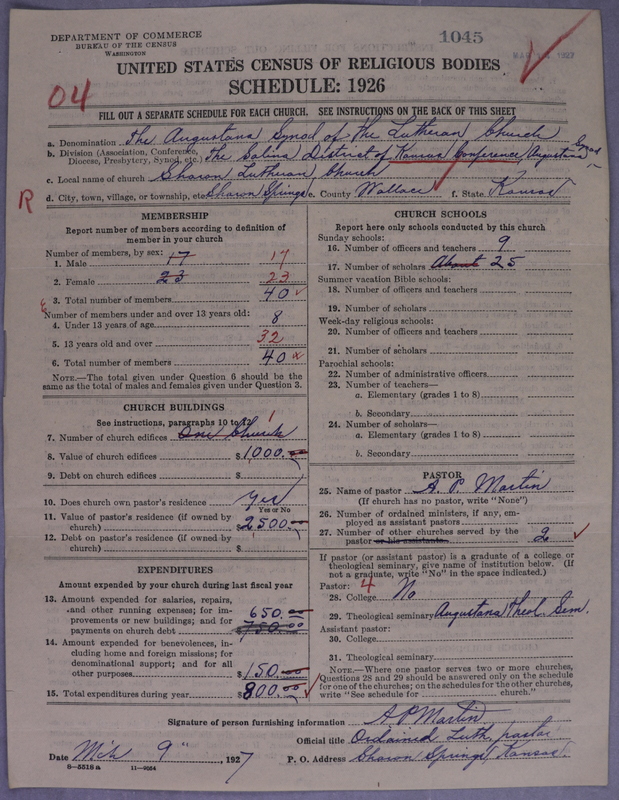 DEPARTMENT OF COMMERCE
BUREAU OF THE CENSUS
WASHINGTON
1045
UNITED STATES CENSUS OF RELIGIOUS BODIES
SCHEDULE: 1926
04
FILL OUT A SEPARATE SCHEDULE FOR EACH CHURCH. SEE INSTRUCTIONS ON THE BACK OF THIS SHEET
a. Denomination The Augustana Synod of the Lutheran Church
b. Division (Association, Conference, Diocese, Presbytery, Synod, etc.) The Salina District of Kansas Conference, Augustana Synod
c. Local name of church Sharon Lutheran Church
R
d. City, town, village, or township, etc. Sharon Springs e. County Wallace f. State Kansas
MEMBERSHIP
Report number of members according to definition of
member in your church
Number of members, by sex:
1. Male 17 17
2. Female 23 23
3. Total number of members 40
Number of members under and over 13 years old:
4. Under 13 years of age 8
5. 13 years old and over 32
6. Total number of members 40
NOTE.—The total given under Question 6 should be the
same as the total of males and females given under Question 3.
CHURCH BUILDINGS
See instructions, paragraphs 10 to 12
7. Number of church edifices One Church 1
8. Value of church edifices $1000.00
9. Debt on church edifices $
10. Does church own pastor's residence Yes
Yes or No
11. Value of pastor's residence (if owned by
church) $2500.00
12. Debt on pastor's residence (if owned by
church) $
EXPENDITURES
Amount expended by your church during last fiscal year
13. Amount expended for salaries, repairs,
and other running expenses; for im-
provements or new buildings; and for
payments on church debt 650.00
$750.00
14. Amount expended for benevolences, in-
cluding home and foreign missions; for
denominational support; and for all
other purposes $150.00
15. Total expenditures during year $800.00
CHURCH SCHOOLS
Report here only schools conducted by this church
Sunday schools:
16. Number of officers and teachers 9
17. Number of scholars About 25
Summer vacation Bible schools:
18. Number of officers and teachers
19. Number of scholars
Week-day religious schools:
20. Number of officers and teachers
21. Number of scholars
Parochial schools:
22. Number of administrative officers
23. Number of teachers—
a. Elementary (grades 1 to 8)
b. Secondary
24. Number of scholars—
a. Elementary (grades 1 to 8)
b. Secondary
PASTOR
25. Name of pastor A. P. Martin
(If church has no pastor, write "None")
26. Number of ordained ministers, if any, em-
ployed as assistant pastors
27. Number of other churches served by the
pastor or his assistants 2
If pastor (or assistant pastor) is a graduate of a college or
theological seminary, give name of institution below. (If
not a graduate, write "No" in the space indicated.)
Pastor: 4
28. College No
29. Theological seminary Augustana Theol. Sem.
Assistant pastor:
30. College
31. Theological seminary
NOTE.—Where one pastor serves two or more churches,
Questions 28 and 29 should be answered only on the schedule
for one of the churches; on the schedules for the other churches,
write "See schedule for church."
Signature of person furnishing information A P Martin
Official title Ordained Luth. pastor
Date Mch 9" 1927 P. O. Address Sharon Springs, Kansas.
8—5518 a 11—9054